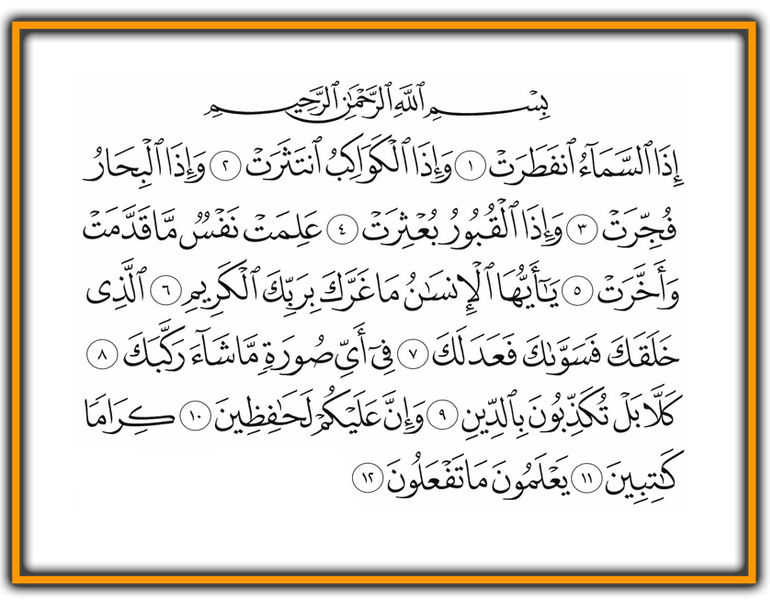 بِسْمِ ٱللَّهِ ٱلرَّحْمَٰنِ ٱلرَّحِيمِ
إِذَا ٱلسَّمَآءُ ٱنفَطَرَتْ ١ وَإِذَا ٱلْكَوَاكِبُ ٱنتَثَرَتْ ٢ وَإِذَا ٱلْبِحَارُ
فُجِّرَتْ ٣ وَإِذَا ٱلْقُبُورُ بُعْثِرَتْ ٤ عَلِمَتْ نَفْسٌ مَّا قَدَّمَتْ
وَأَخَّرَتْ ٥ يَٰٓأَيُّهَا ٱلْإِنسَٰنُ مَا غَرَّكَ بِرَبِّكَ ٱلْكَرِيمِ ٦ ٱلَّذِى
خَلَقَكَ فَسَوَّىٰكَ فَعَدَلَكَ ٧ فِىٓ أَىِّ صُورَةٍ مَّا شَآءَ رَكَّبَكَ ٨
كَلَّا بَلْ تُكَذِّبُونَ بِٱلدِّينِ ٩ وَإِنَّ عَلَيْكُمْ لَحَٰفِظِينَ ١٠ كِرَامًا
كَٰتِبِينَ ١١ يَعْلَمُونَ مَا تَفْعَلُونَ ١٢